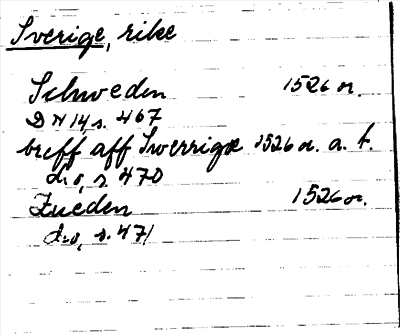 Sverige, rike
Schweden 1526 or.
DN 14, s. 467
breff aff Swerrige 1526 or. a. t.
d:o, s. 470
Zueden 1526 or.
d:o, s. 471